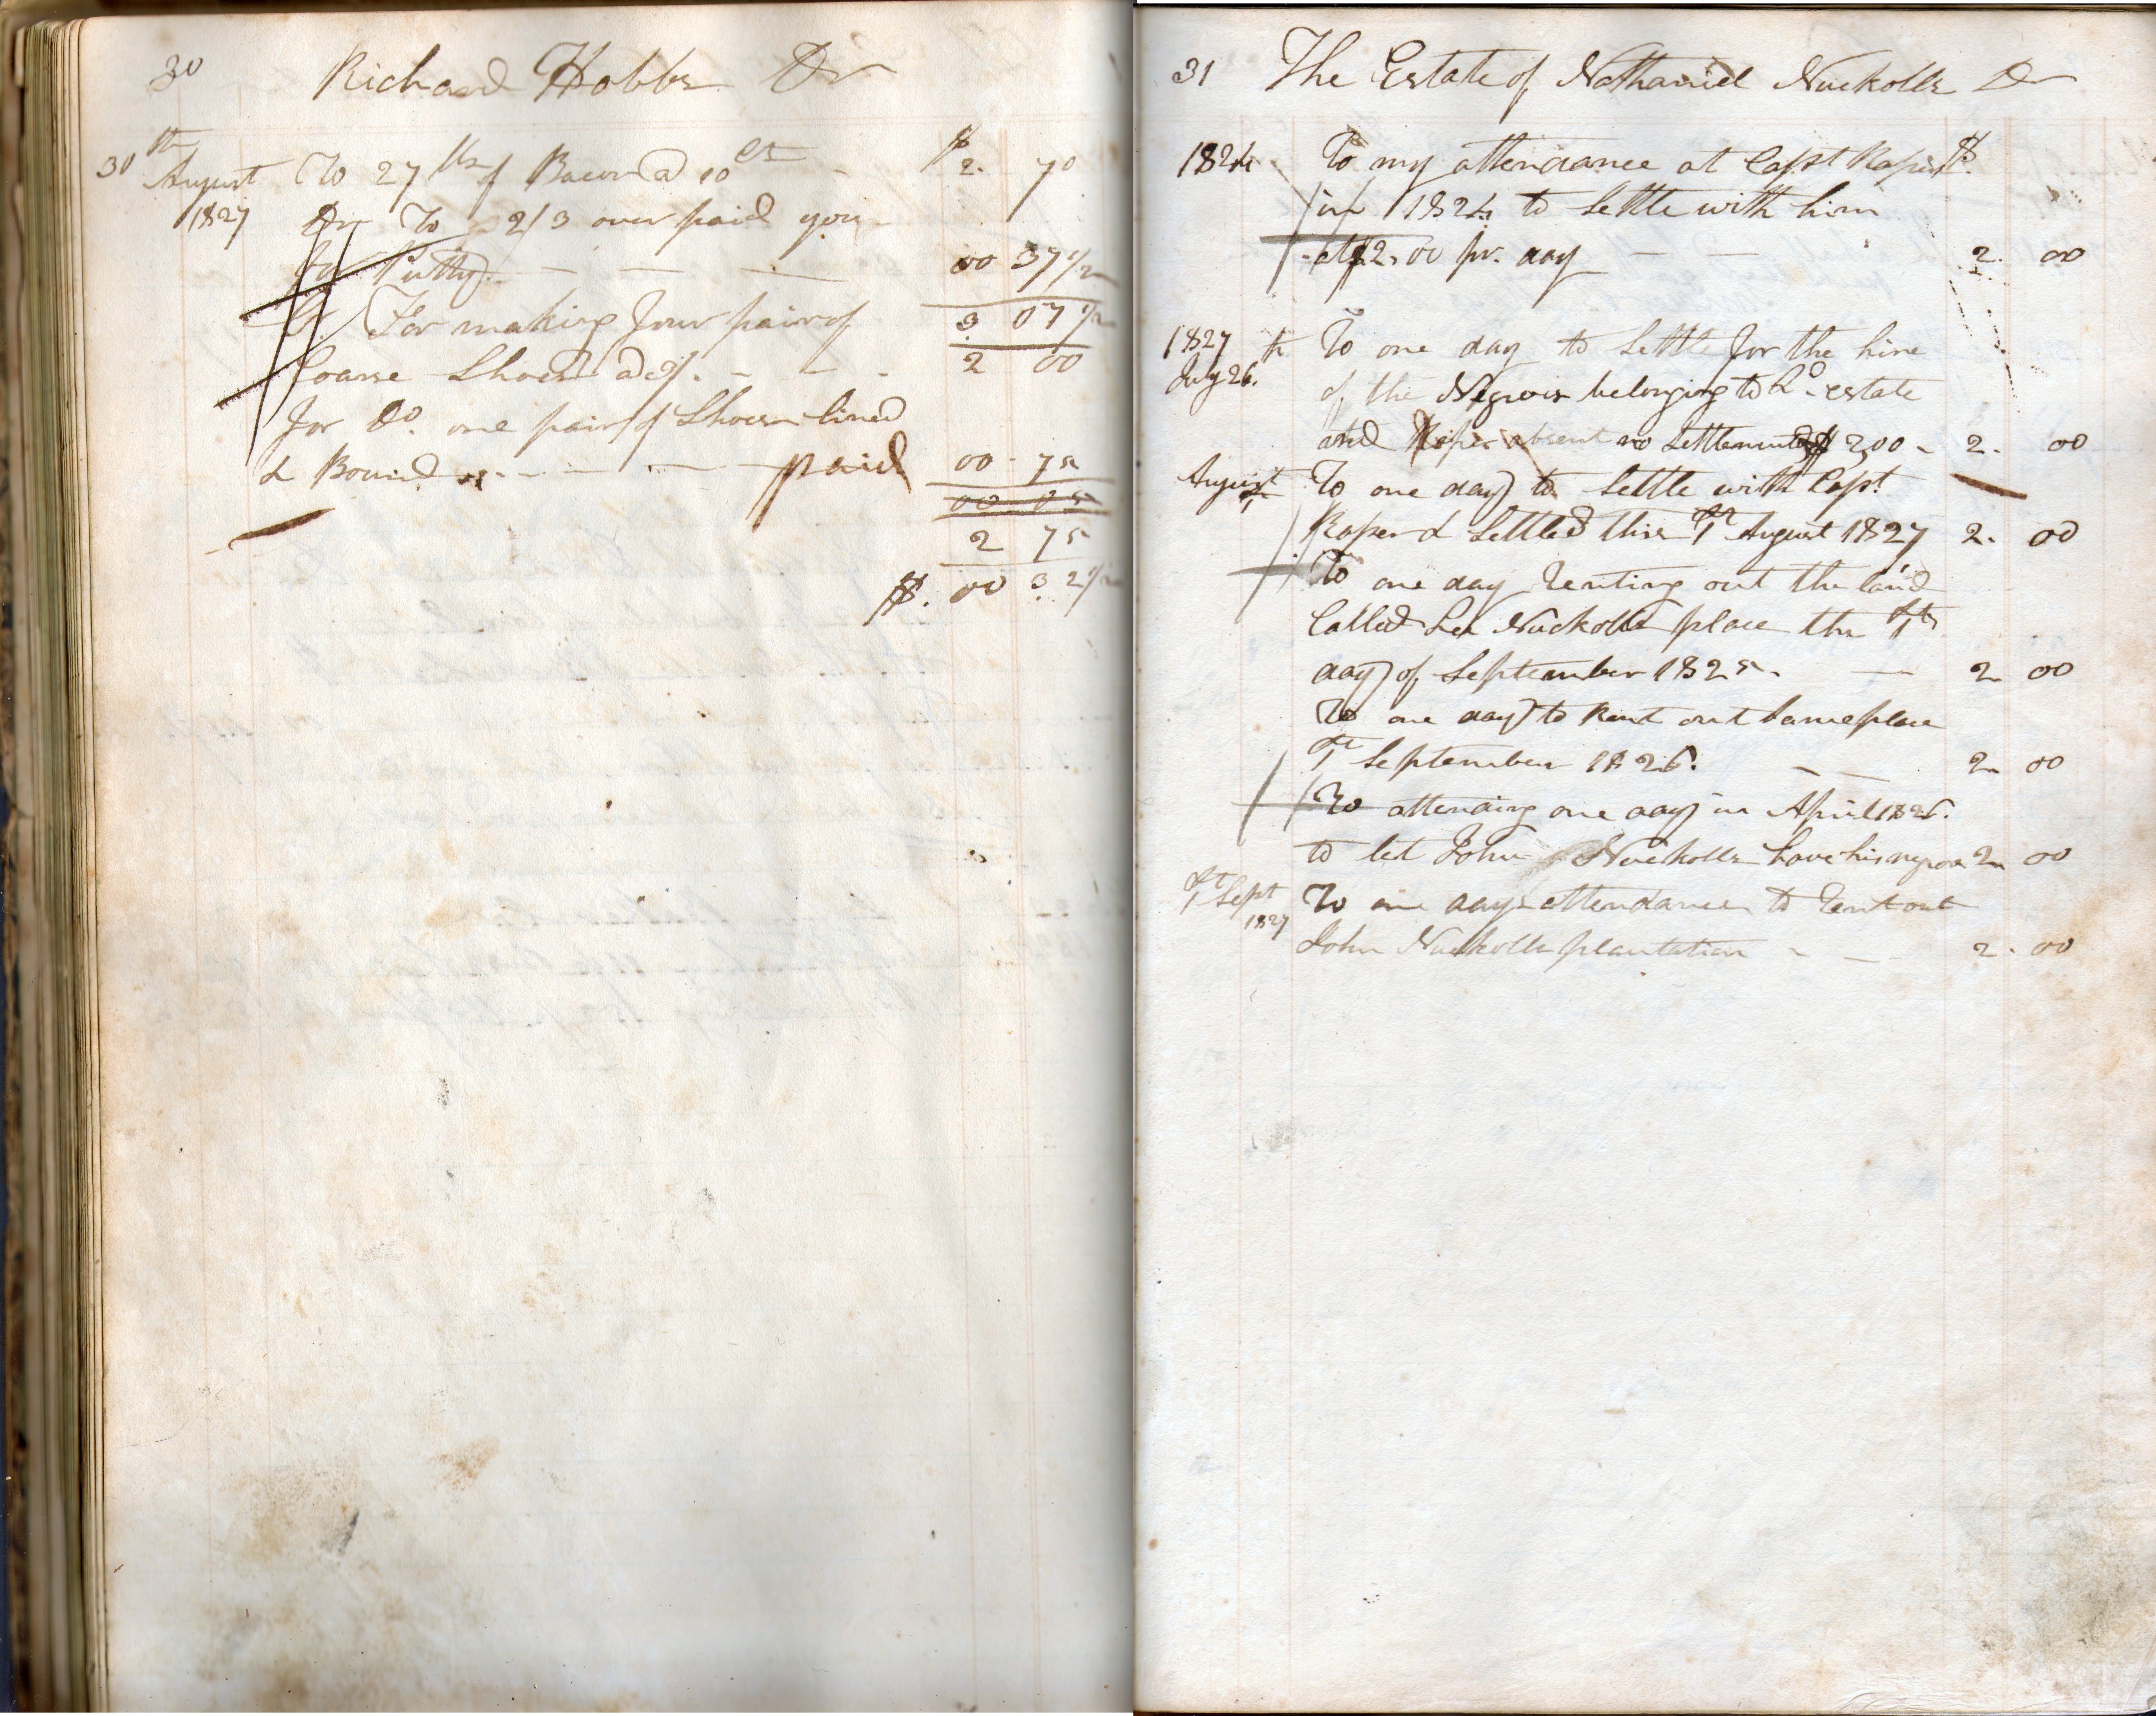 30 Richard Hobbs Dr
30th August 1827 To 27 lbs of Bacon @ 10 cts - $ 2. 70
Dr To 2/3 over paid you
by Putty. — — — 00 37 1/2
3 07 1/2
Cr For making four pair of
Coarse Shoes a 3/. - - - 2 00
for Do. one pair of Shoes lined
& Bound - - - paid 00 - 75
00 - 05
2 75
$. 00 32 1/2
31 The Estate of Nathaniel Nuckolls Dr
1824 To my attendance at Capt Ropers $.
in 1824 to Settle with him
at $2.00 pr. day — — 2. 00
1827 July 26.th To one day to Settle for the hire
of the Negroes belonging to Sd. estate
and Roper absent no Settlement $ 200 - 2. 00
August To one day to Settle with Capt.
Roper & Settled this August 1827 2. 00
To one day Renting out the land
Called Nuckolls place the
day of September 1825. — 2 00
To one day to Rent out Same place
September 1826. — — 2 00
To attending one day in April 1826.
to let John Nuckolls have his negroes 2 00
Sept 1827 To one days attendance to Rent out
John Nuckolls plantation - — 2. 00